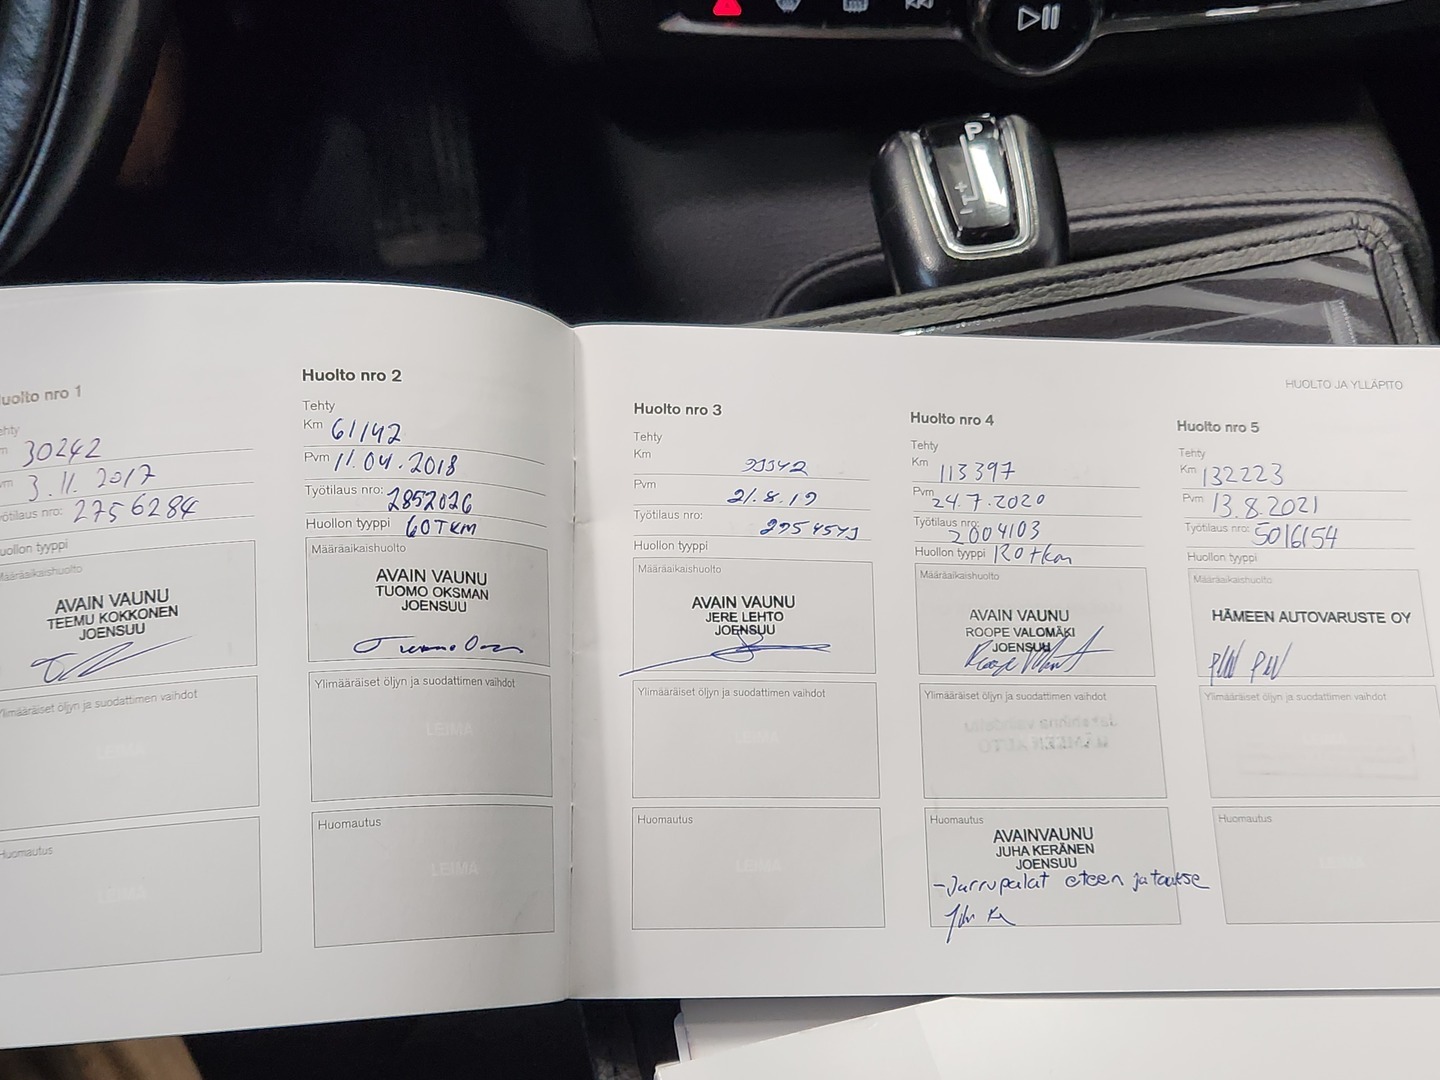 P
HUOLTO JA YLLÄPITO
Huolto nro 1
30242
3.11.2017
2756284
TEEMU KOKKONEN
AVAIN VAUNU
JOENSUU
Ylimääräiset öljyn ja suodattimen vaihdot
LEIMA
Huomautus
LEIMA
Huolto nro 2
Tehty
Km 61142
Pvm 11.04.2018
Työtilaus nro: 2852026
Huollon tyyppi 60TKM
Määräaikaishuolto
AVAIN VAUNU
TUOMO OKSMAN
JOENSUU
Ylimääräiset öljyn ja suodattimen vaihdot
LEIMA
Huomautus
LEIMA
Huolto nro 3
Tehty
Km
Pvm 21.8.19
Työtilaus nro:
Huollon tyyppi
Määräaikaishuolto
AVAIN VAUNU
JERE LEHTO
JOENSUU
Ylimääräiset öljyn ja suodattimen vaihdot
LEIMA
Huomautus
LEIMA
Huolto nro 4
Tehty
Km 113397
Pvm 24.7.2020
Työtilaus nro: 2004103
Huollon tyyppi
Määräaikaishuolto
AVAIN VAUNU
ROOPE VALOMÄKI
JOENSUU
Ylimääräiset öljyn ja suodattimen vaihdot
Huomautus
AVAINVAUNU
JUHA KERÄNEN
JOENSUU
-Jarrupalat eteen ja taakse
Huolto nro 5
Tehty
Km 132223
Pvm 13.8.2021
Työtilaus nro: 5016154
Huollon tyyppi
Määräaikaishuolto
HÄMEEN AUTOVARUSTE OY
Ylimääräiset öljyn ja suodattimen vaihdot
Huomautus
LEIMA